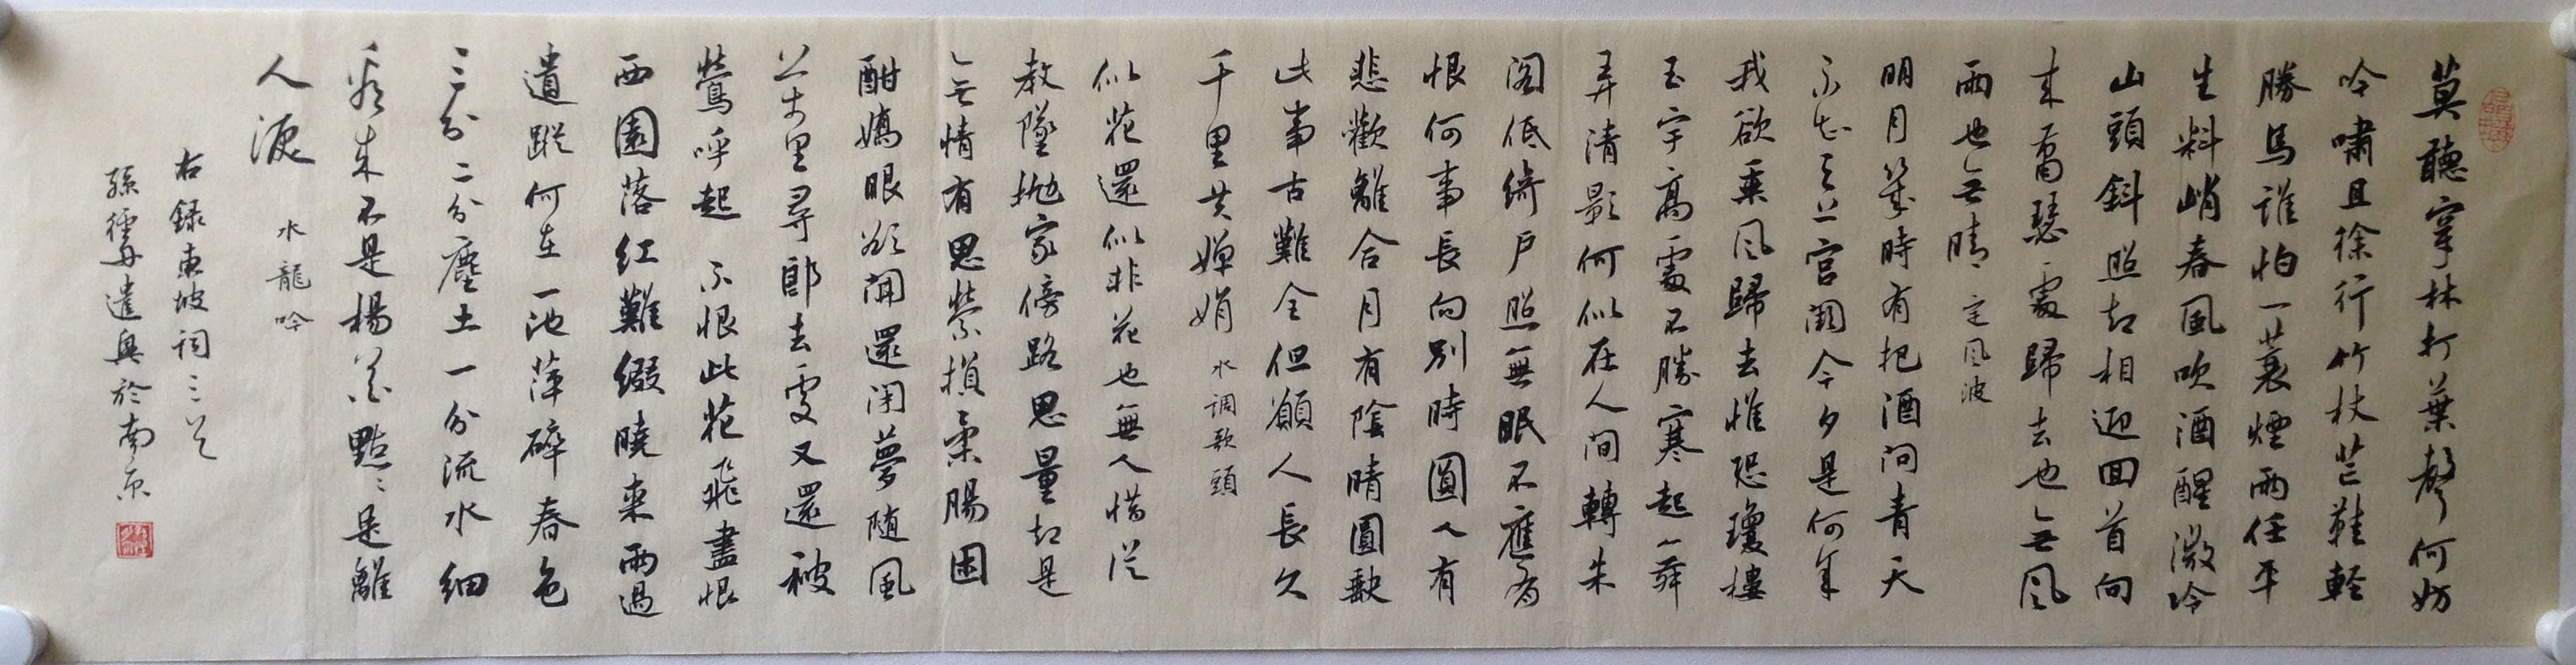 莫聽穿林打葉聲何妨
吟嘯且徐行竹杖芒鞋輕
勝馬誰怕一蓑煙雨任平
生料峭春風吹酒醒微冷
山頭斜照却相迎回首向
来蕭瑟處歸去也無風
雨也無晴 定風波
明月幾時有把酒问青天
不知天上宫闕今夕是何年
我欲乘風歸去惟恐瓊樓
玉宇高處不勝寒起舞
弄清影何似在人间轉朱
阁低绮户照無眠不應有
恨何事長向别時圓人有
悲歡離合月有陰晴圓缺
此事古難全但願人長久
千里共嬋娟 水调歌頭
似花還似非花也無人惜從
教墜抛家傍路思量却是
無情有思縈損柔腸困
酣嬌眼欲開還闭夢随風
萬里尋郎去處又還被
鶯呼起不恨此花飛盡恨
西園落红難綴曉来雨過
遺蹤何在一池萍碎春色
三分二分塵土一分流水细
看来不是楊花點點是離
人淚 水龍吟
右録東坡词三首
孫 遣興於南京